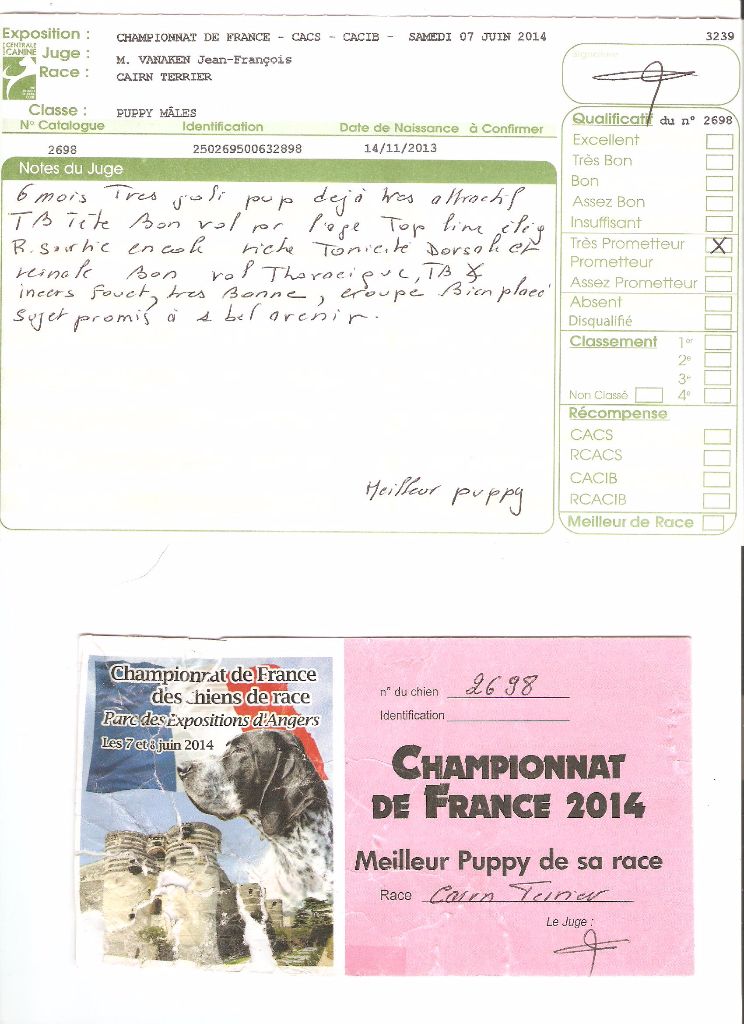 Exposition : CHAMPIONNAT DE FRANCE - CACS - CACIB - SAMEDI 07 JUIN 2014 3239
CENTRALE CANINE
Juge : M. VANAKEN Jean-François
Race : CAIRN TERRIER
Signature
Classe : PUPPY MÂLES
N° Catalogue Identification Date de Naissance à Confirmer
2698 250269500632898 14/11/2013
Notes du Juge
6 mois Tres joli pup dejà tres attractif
TB Tète Bon vol pr l'age Top line
R. sortie encole riche Tonicité Dorsale et
Bon vol Thoracique, TB
fouet, tres Bonne, croupe Bien placé
Sujet promis à 1 bel avenir.
Meilleur puppy
Qualificatif du n° 2698
Excellent
Très Bon
Bon
Assez Bon
Insuffisant
Très Prometteur X
Prometteur
Assez Prometteur
Absent
Disqualifié
Classement 1er
2e
3e
Non Classé 4e
Récompense
CACS
RCACS
CACIB
RCACIB
Meilleur de Race
Championnat de France
des chiens de race
Parc des Expositions d'Angers
Les 7 et 8 juin 2014
n° du chien 2698
Identification
CHAMPIONNAT
DE FRANCE 2014
Meilleur Puppy de sa race
Race Cairn Terrier
Le Juge :